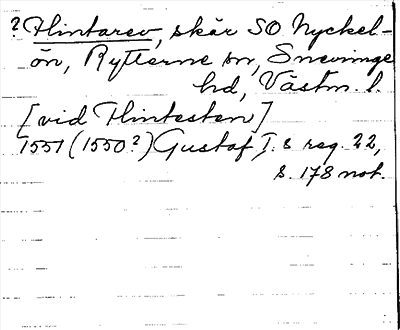 ? Flintarev, skär SO Nyckel-
ön, Rytterne sn, Snevinge
hd, Västm. l.
[vid Flintesten]
1551 (1550?) Gustaf I:s reg. 22,
s. 178 not.